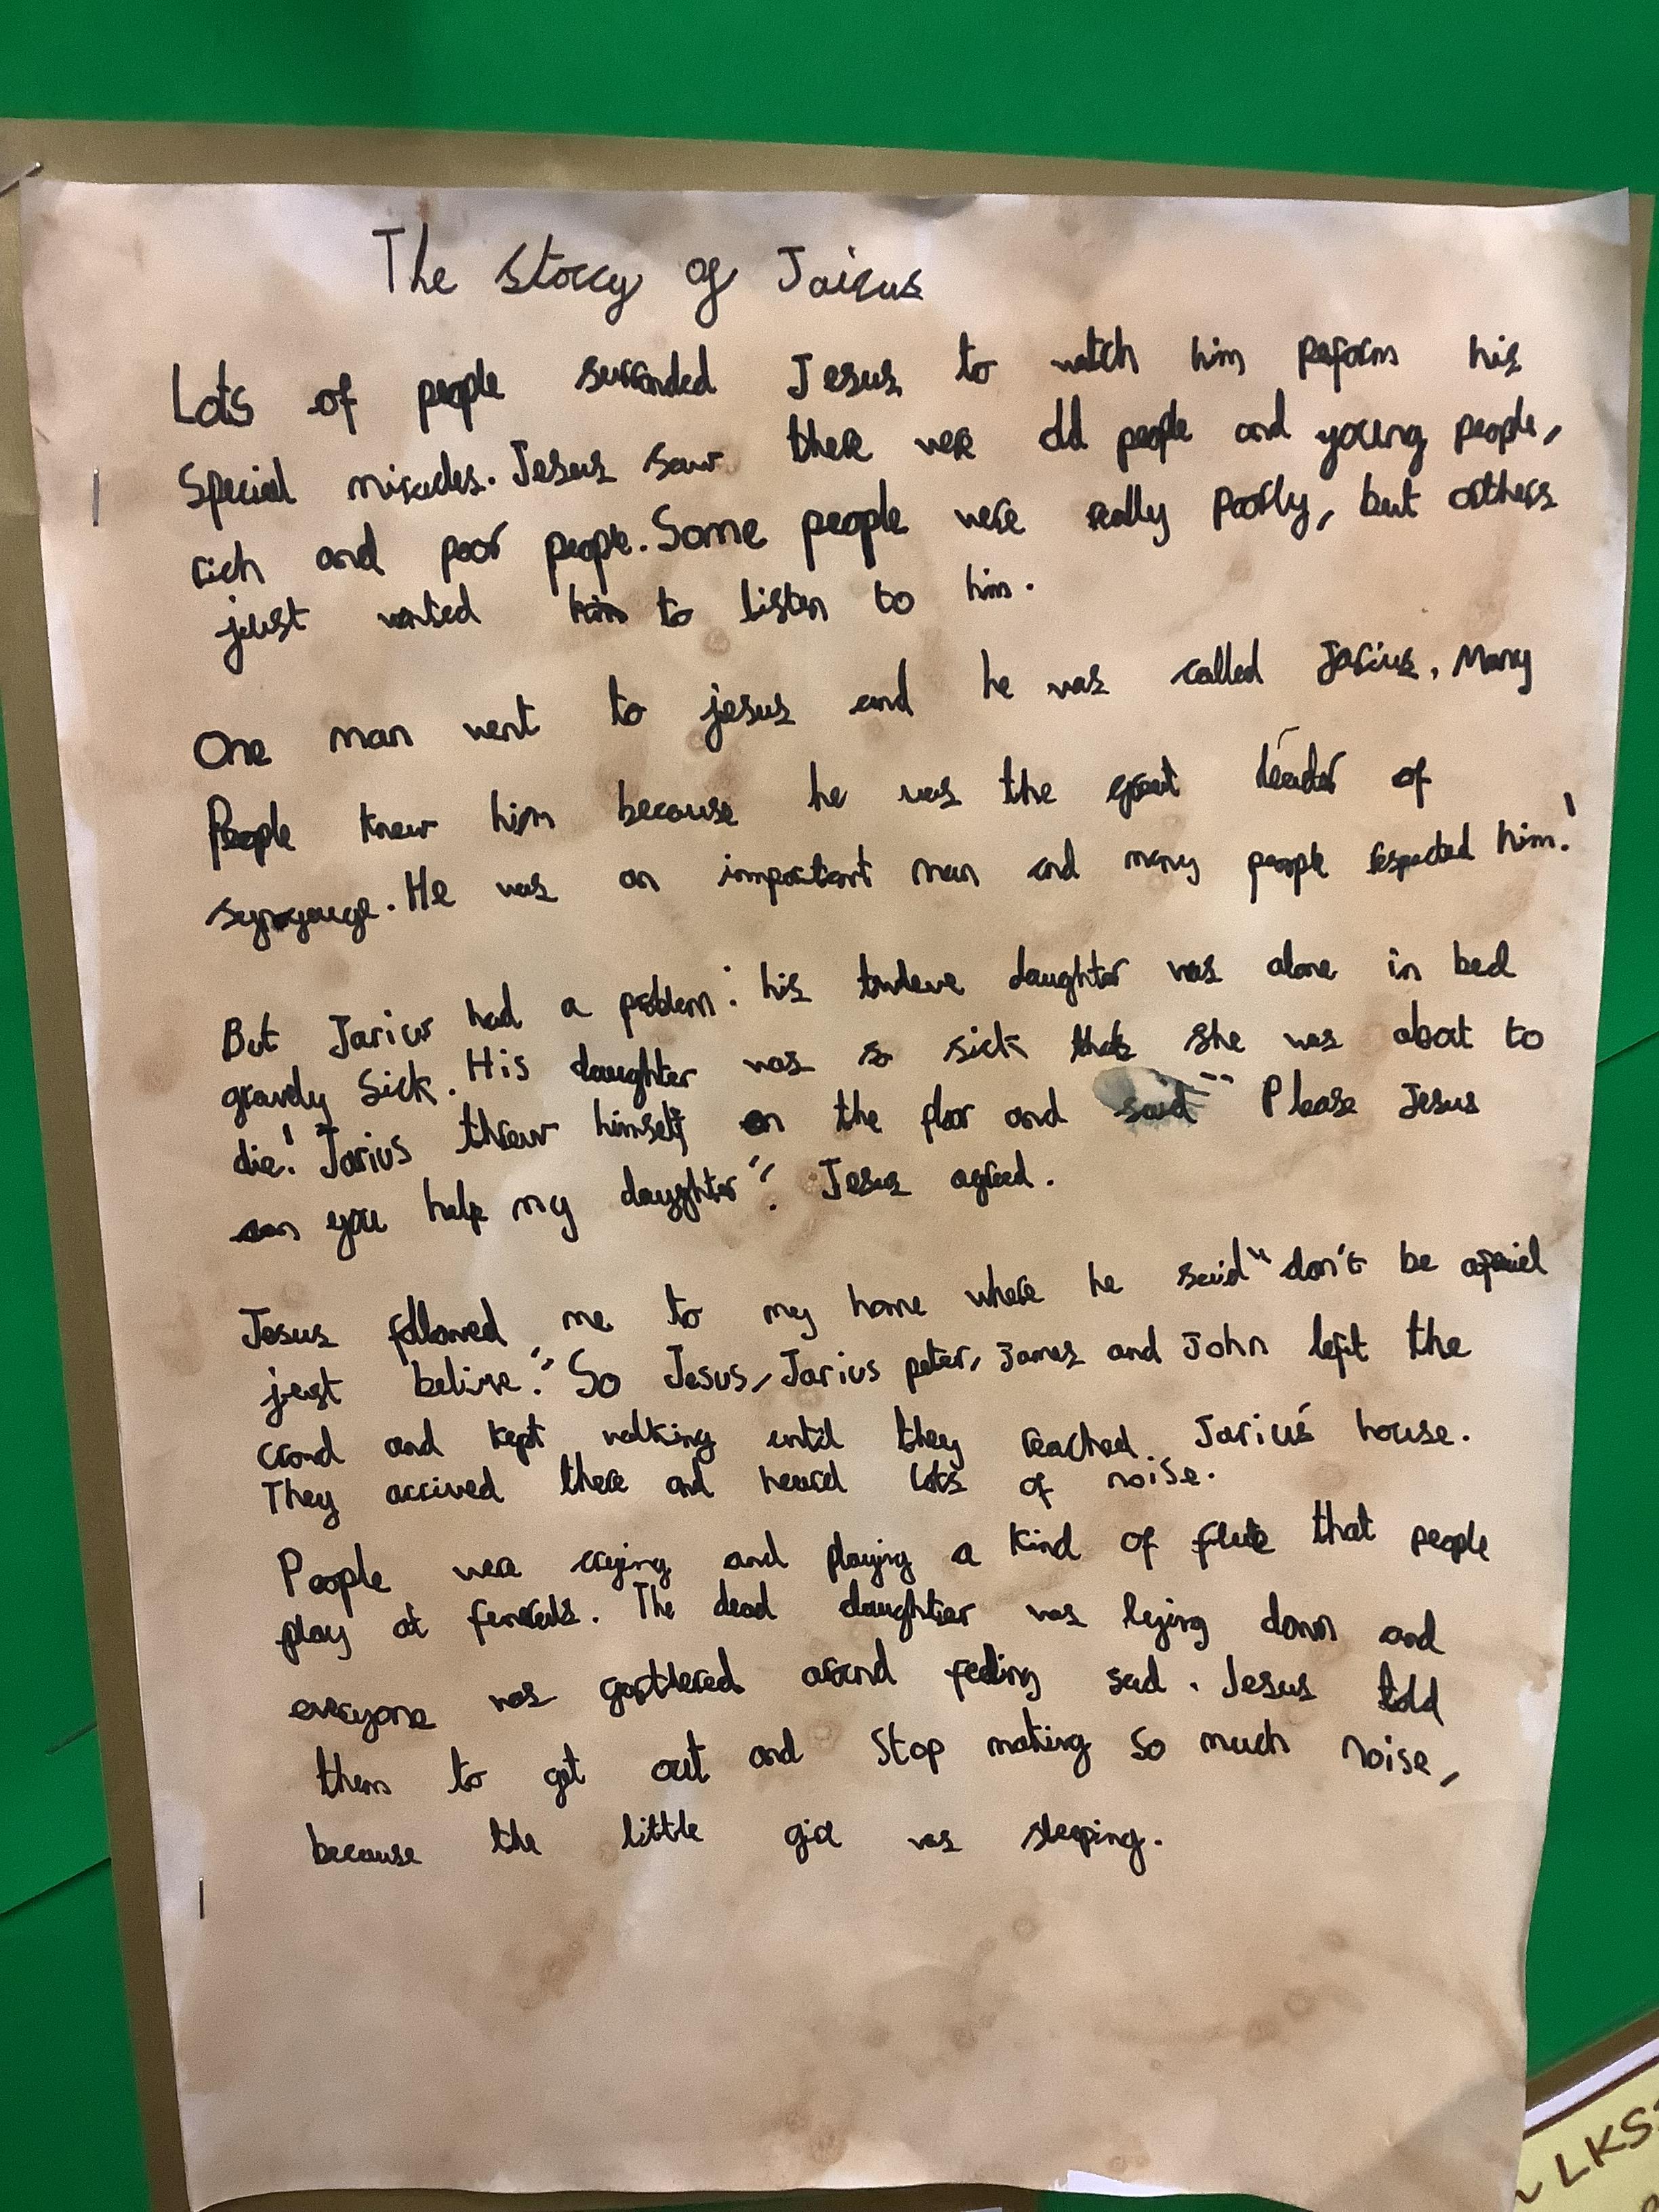 The story of Jairus
Lots of people surronded Jesus to watch him peform his
Special miracles. Jesus saw there were old people and young people,
rich and poor people. Some people were really poorly, but others
just wanted him to listen to him.
One man went to jesus and he was called Jarius. Many
People knew him because he was the great leader of
synogauge. He was an important man and many people respected him!
But Jarius had a problem: his twleve daughter was alone in bed
gravely Sick. His daughter was so sick that she was about to
die! Jarius threw himself on the floor and said "Please Jesus
can you help my daughter"? Jesus agreed.
Jesus followed me to my home where he said "don't be afraid
just belive." So Jesus, Jarius peter, James and John left the
crowd and kept walking until they reached Jariu's house.
They arrived there and heard lots of noise.
People were crying and playing a kind of flute that people
play at funerals. The dead daughter was lying down and
everyone was gathered around feeling sad. Jesus told
them to get out and Stop making so much noise,
because the little girl was sleeping.
LKS2